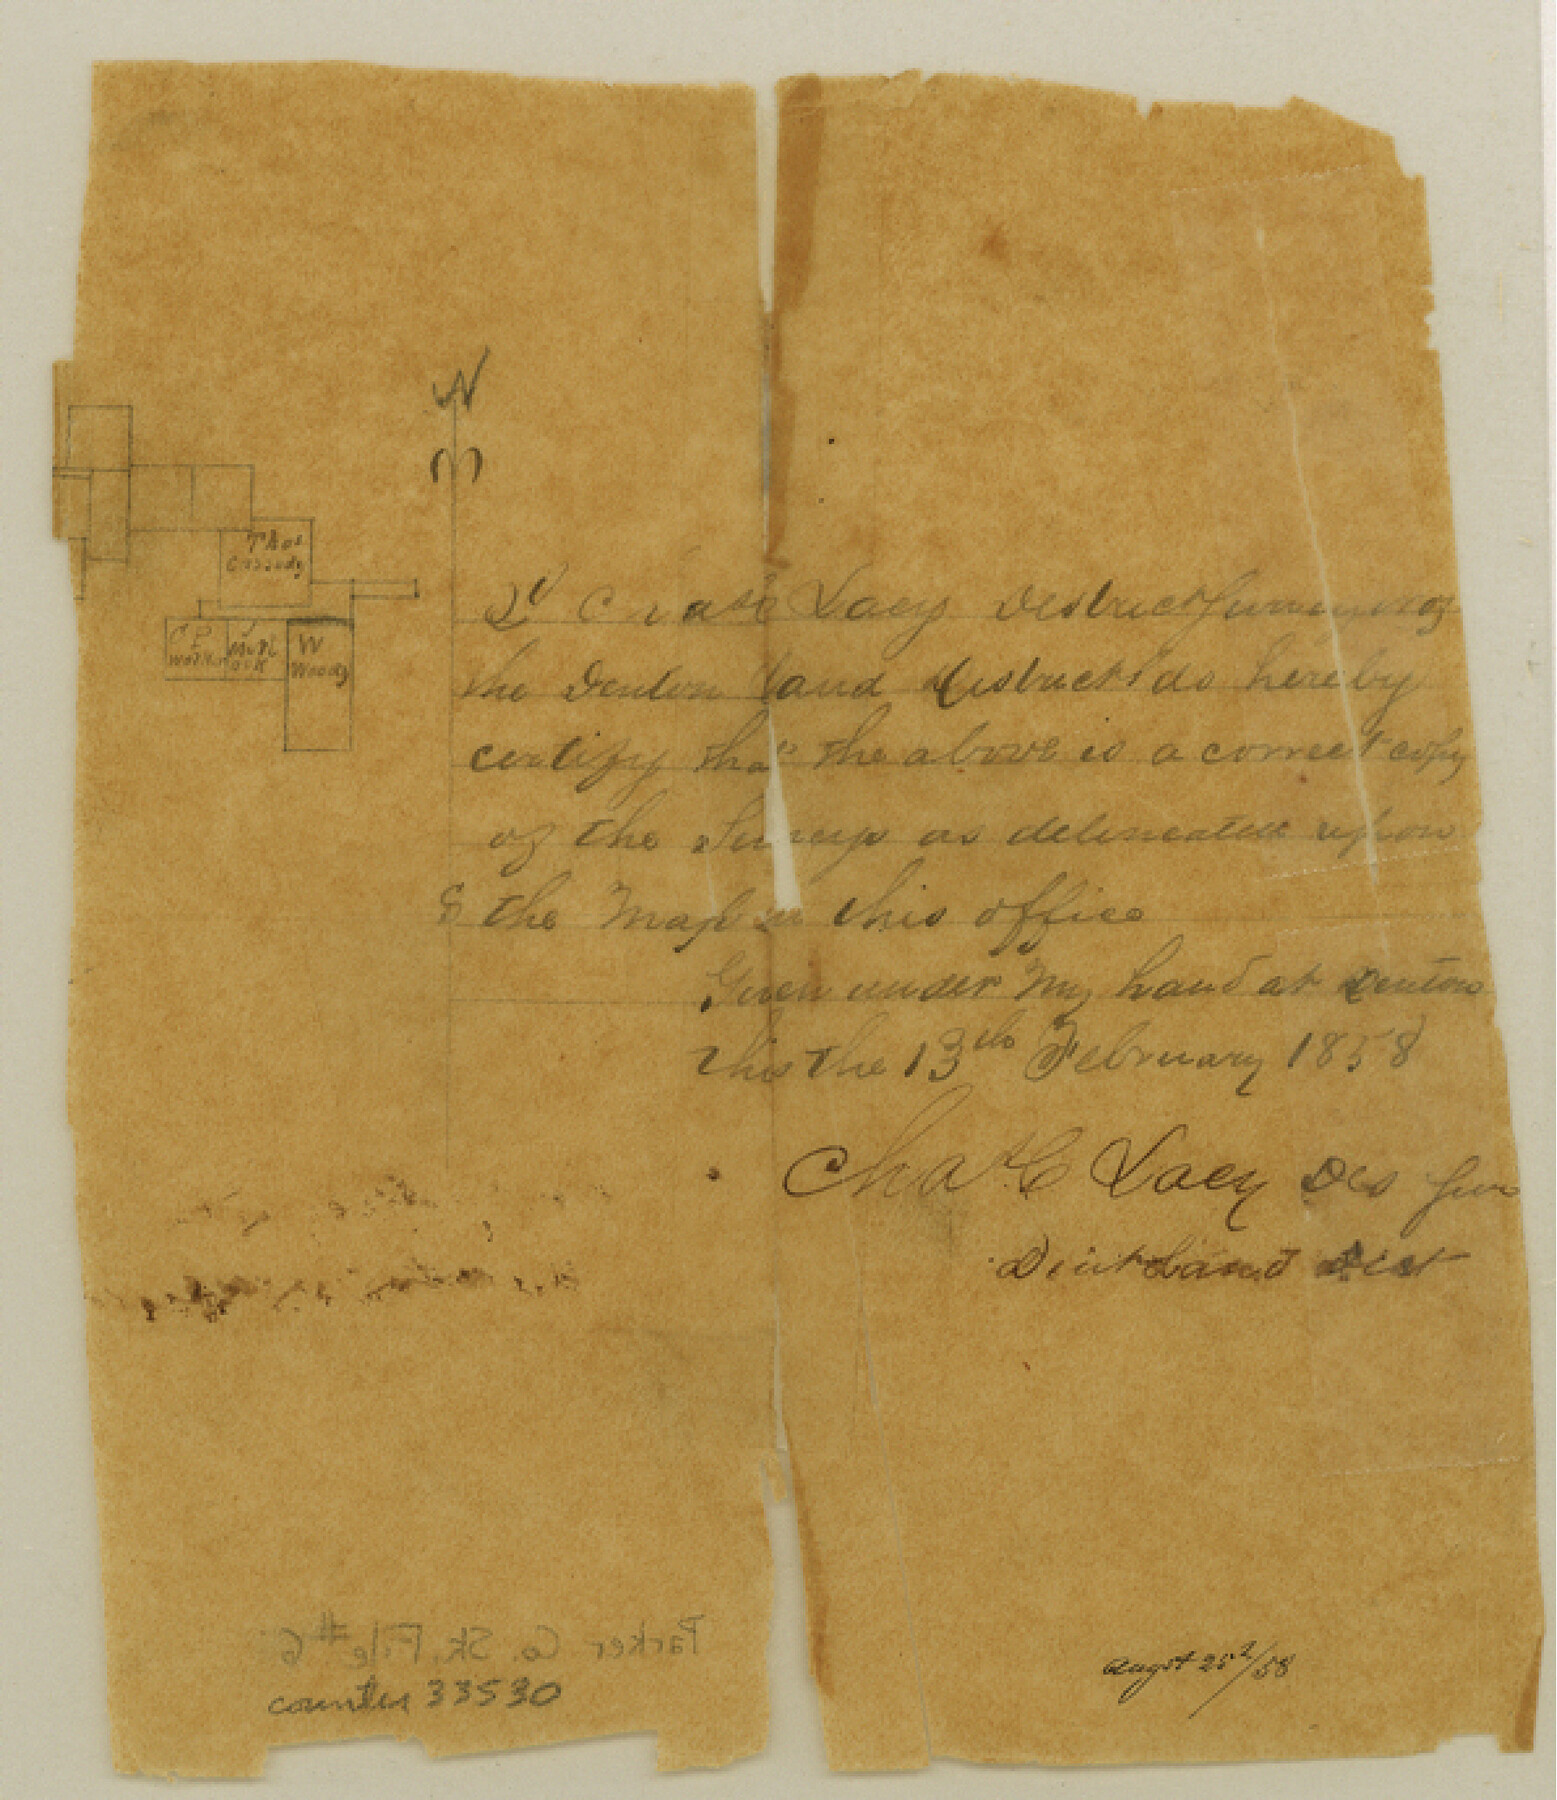 N
Thos
Cassady
C P
W
Woody
I Chas C Lacy District Surveyor of
the Denton Land District do hereby
certify that the above is a correct copy
of the Surveys as delineated upon
the Map in this office
Given under My hand at Denton
this the 13th February 1858
Chas C Lacy Dis Sur
Dent Land Dist
Parker Co. Sk. File #6
counter 33530
August 25d/58